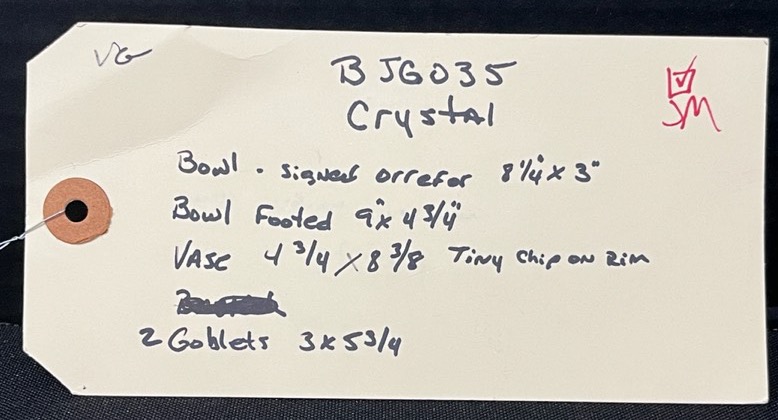 VG
BJG035
Crystal
JM
Bowl. signed orrefor 8 1/4" x 3"
Bowl Footed 9" x 4 3/4"
VASE 4 3/4 x 8 3/8 Tiny Chip on Rim
2 Goblets 3 x 5 3/4